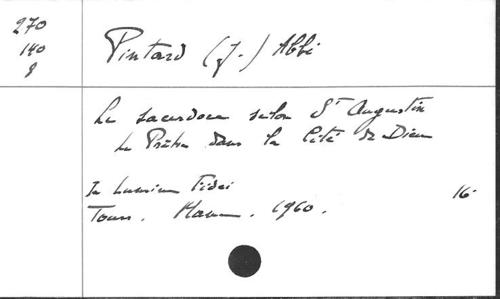 270
140
8
Pintard (J.) Abbé
Le sacerdoce selon St Augustin
Le Prêtre dans la Cité de Dieu
In Lumine Fidei
Tours. Mame. 1960.
16